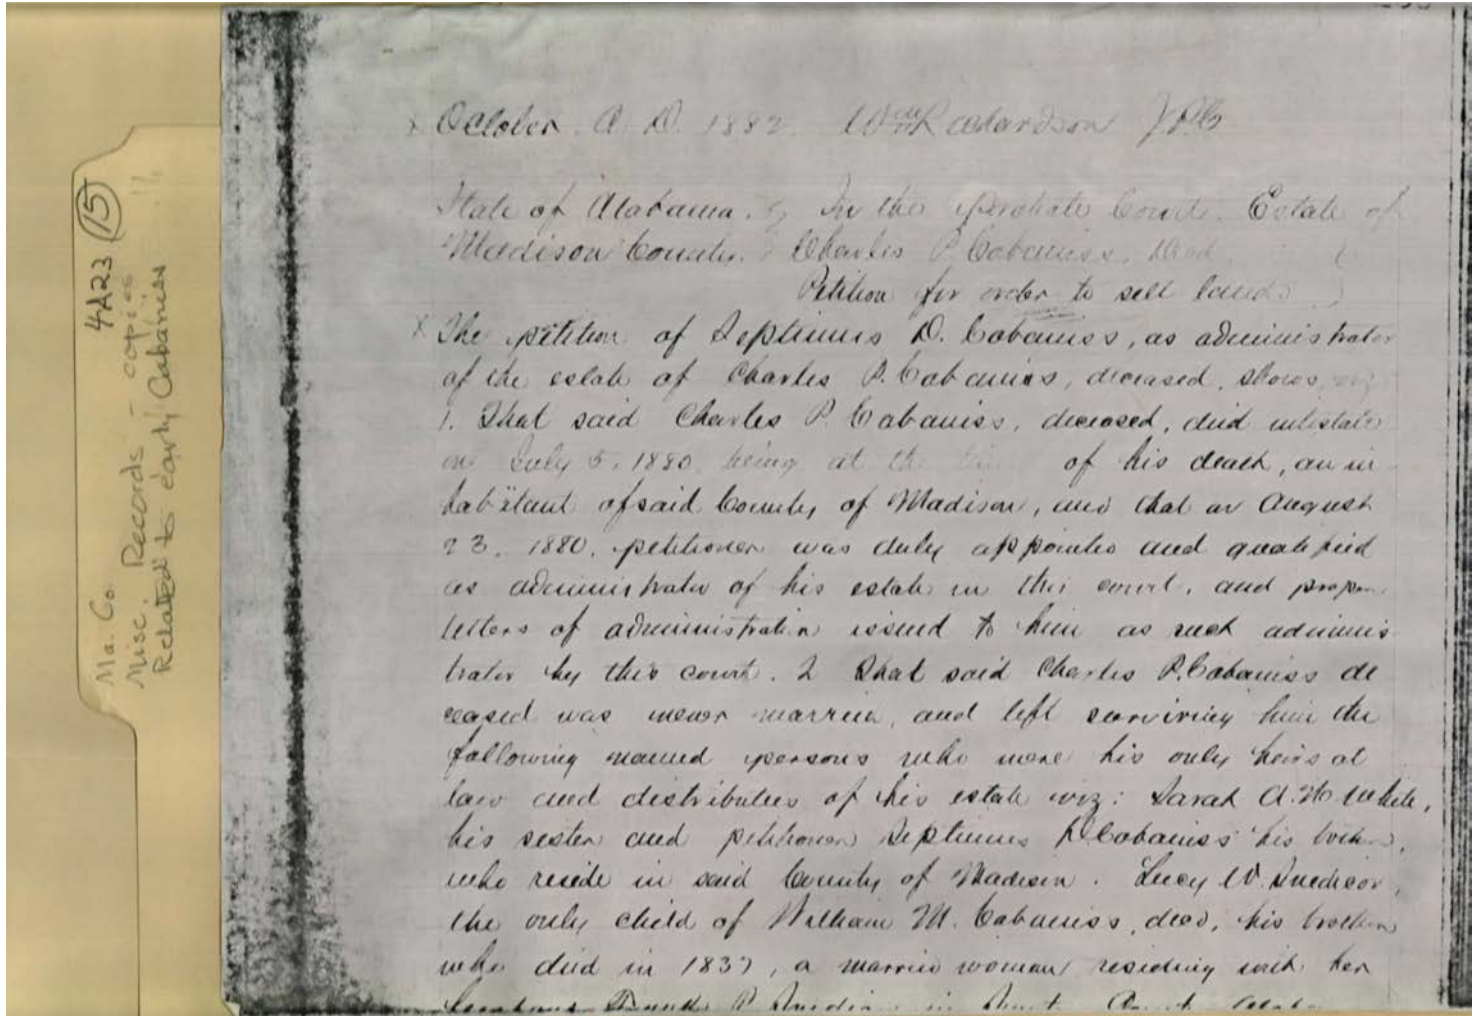 4A23 (15)
Ma. Co.
Misc. Records - copies
Related to early Cabaniss
October. A. D. 1882. Wm Richardson JPC
State of Alabama. In the Probate Court. Estate of
Madison County. Charles P. Cabaniss, Decd.
Petition for order to sell lands
X The petition of Septimus D. Cabaniss, as administrator
of the estate of Charles P. Cabaniss, deceased, shows
1. That said Charles P. Cabaniss, deceased, died intestate
on July 5, 1880, being at the time of his death, an in
habitant of said County of Madison, and that on August
23, 1880, petitioner was duly appointed and qualified
as administrator of his estate in this court, and proper
letters of administration issued to him as such adminis-
trator by this court. 2 That said Charles P. Cabaniss de
ceased was never married, and left surviving him the
following named persons who were his only heirs at
law and distributees of his estate viz: Sarah A. White,
his sister and petitioner Septimus D Cabaniss his brother,
who reside in said County of Madison. Lucy W. Snedicor,
the only child of William M. Cabaniss, decd, his brother
who died in 1837, a married woman residing with her